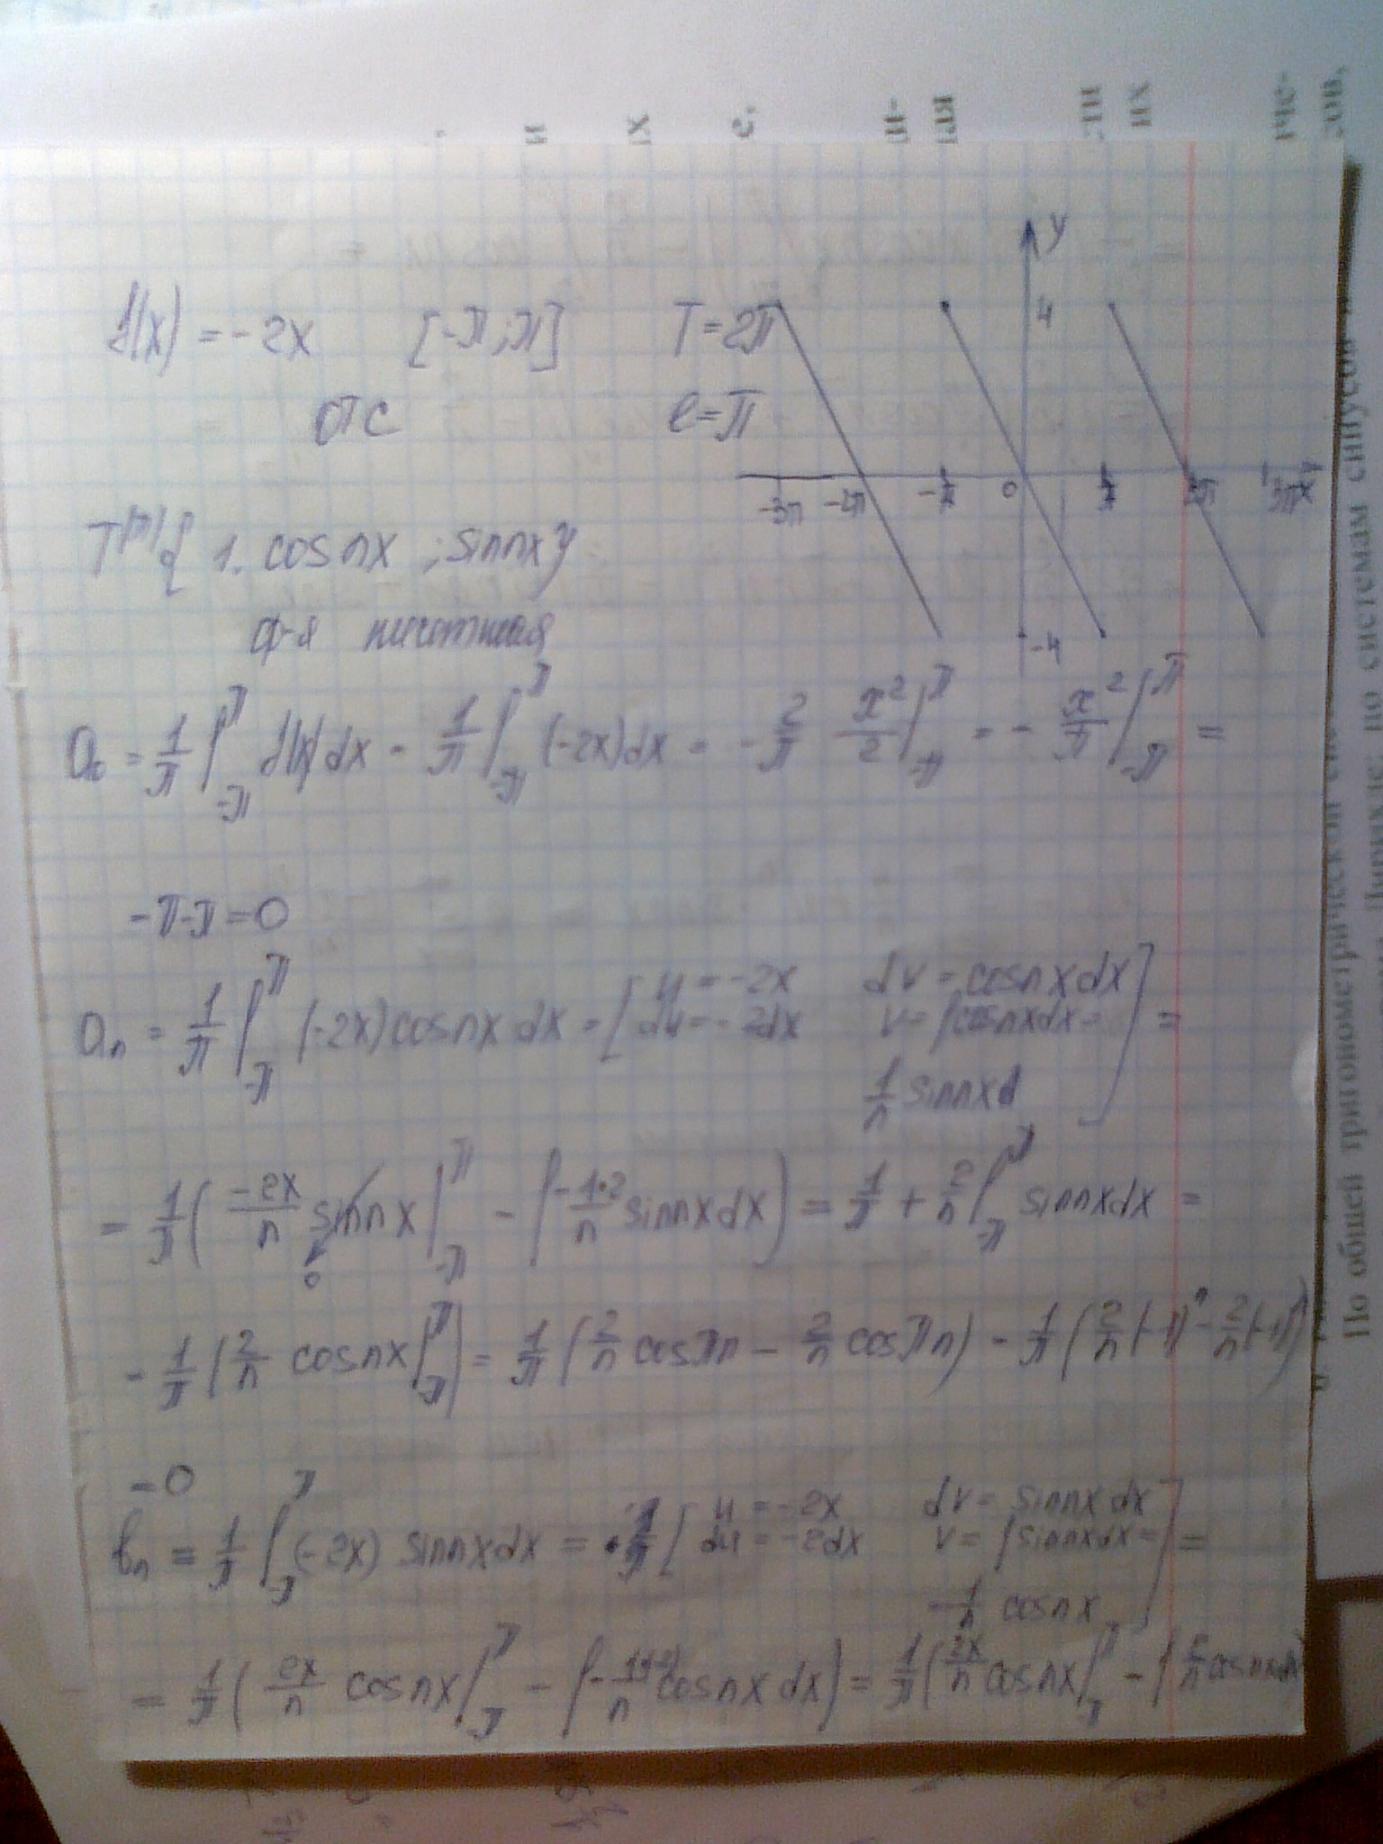 y
f(x) = -2x [-π; π] T = 2π
4
отс l = π
-3π -2π -π 0 π 2π 3π x
T^|2π| { 1. cos nx ; sin nx }
-4
ф-я нечетная
a₀ = 1/π ∫_{-π}^{π} f(x) dx = 1/π ∫_{-π}^{π} (-2x) dx = -2/π x²/2 |_{-π}^{π} = - x²/π |_{-π}^{π} =
-π-π = 0
aₙ = 1/π ∫_{-π}^{π} (-2x) cos nx dx = [ u = -2x dv = cos nx dx
du = -2dx v = ∫ cos nx dx = ] =
1/n sin nx d
= 1/π ( -2x/n sin nx |_{-π}^{π} - ∫ -1·2/n sin nx dx ) = 1/π + 2/n ∫_{-π}^{π} sin nx dx =
0
- 1/π ( 2/n cos nx |_{-π}^{π} ) = 1/π ( 2/n cos πn - 2/n cos πn ) = 1/π ( 2/n (-1)ⁿ - 2/n (-1)ⁿ )
= 0
bₙ = 1/π ∫_{-π}^{π} (-2x) sin nx dx = 1/π [ u = -2x dv = sin nx dx
du = -2dx v = ∫ sin nx dx = ] =
-1/n cos nx
= 1/π ( 2x/n cos nx |_{-π}^{π} - ∫ - 1·(-2)/n cos nx dx ) = 1/π ( 2x/n cos nx |_{-π}^{π} - ∫ 2/n cos nx dx
и х е,
По общей тригонометрической
по системам синусов